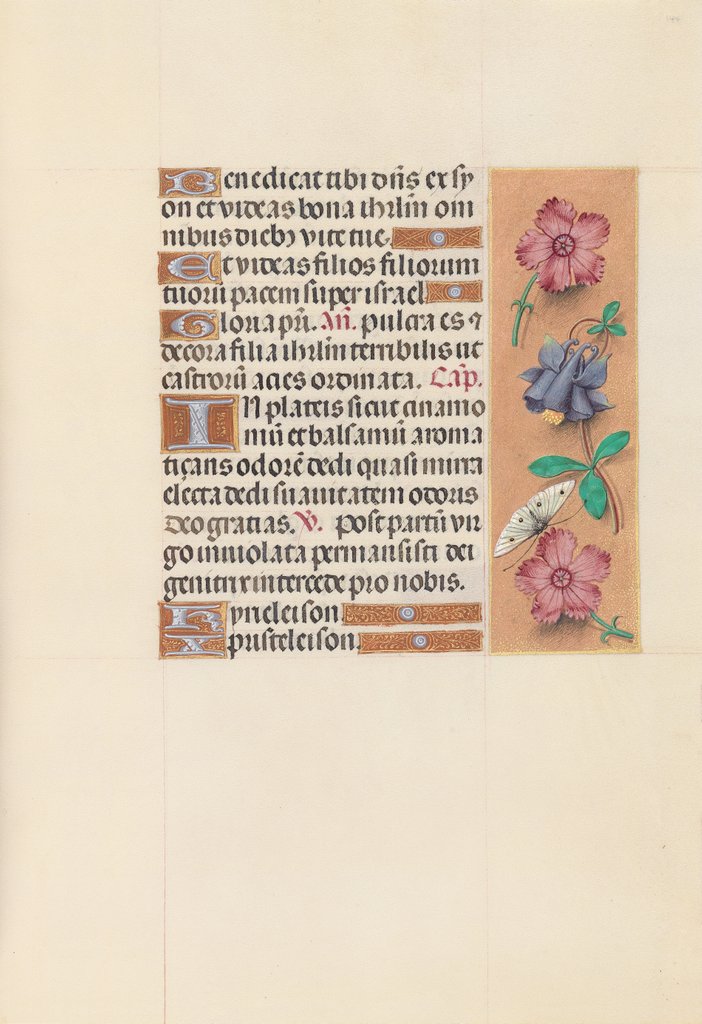 Benedicat tibi dn̄s ex sy
on et videas bona ihrlm̄ om
nibus dieb₉ vite tue.
Et videas filios filiorum
tuorū pacem super israel
Gloria pr̄i. An̄. pulcra es ⁊
decora filia ihrlm̄ terribilis ut
castrorū acies ordinata. Cap̄.
IN plateis sicut cinamo
mū et balsamū aroma
tiçans odorē dedi quasi mirra
electa dedi suauitatem odoris
Deo gratias. V̄. post partū vir
go inuiolata permansisti dei
genitrix intercede pro nobis.
Kyrieleison
Xpristeleison.